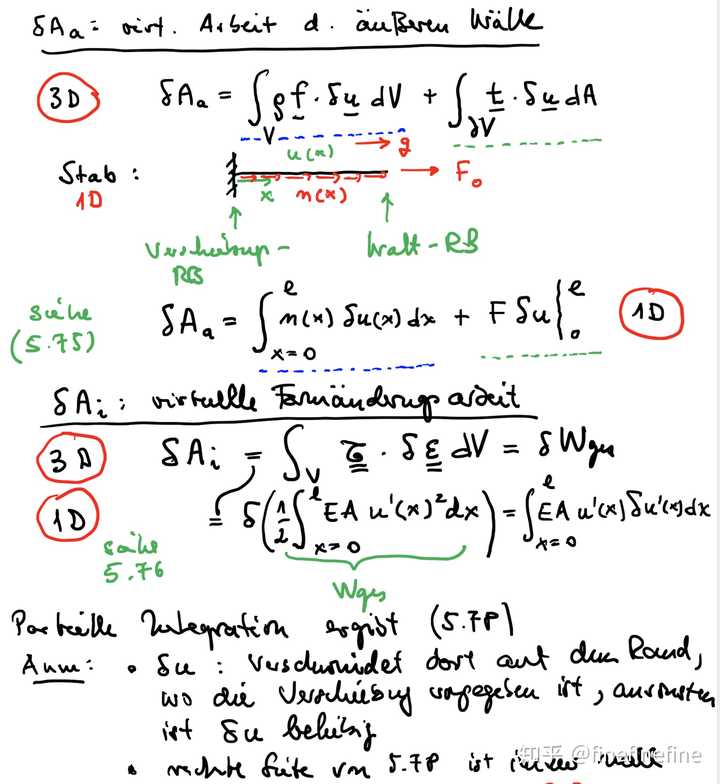 δA_a = virt. Arbeit d. äußeren Kräfte
3D δA_a = ∫_V ρ f · δu dV + ∫_∂V t · δu dA
u(x) g
Stab : x n(x) F_0
1D
Verschiebungs- Kraft-RB
RB
siehe (5.75) δA_a = ∫_{x=0}^{l} n(x) δu(x) dx + F δu |_0^l 1D
δA_i : virtuelle Formänderungsarbeit
3D δA_i = ∫_V σ · δε dV = δW_ges
1D = δ(1/2 ∫_{x=0}^{l} EA u'(x)² dx) = ∫_{x=0}^{l} EA u'(x) δu'(x) dx
siehe 5.76
W_ges
Partielle Integration ergibt (5.78)
Anm: • δu : verschwindet dort auf dem Rand,
wo die Verschiebung vorgegeben ist, ansonsten
ist δu beliebig
• rechte Seite von 5.78 ist immer null
知乎 @finafinefine